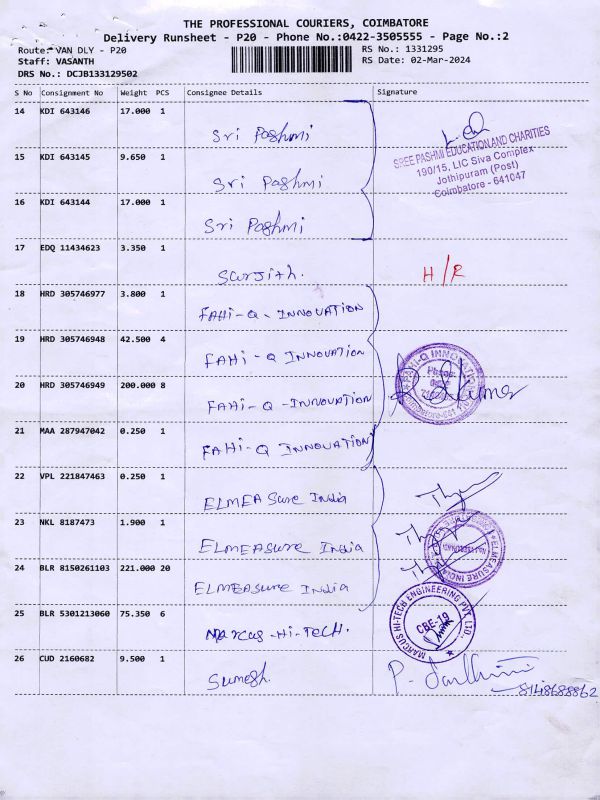 THE PROFESSIONAL COURIERS, COIMBATORE
Delivery Runsheet - P20 - Phone No.:0422-3505555 - Page No.:2
Route: VAN DLY - P20
RS No.: 1331295
Staff: VASANTH
RS Date: 02-Mar-2024
DRS No.: DCJB133129502
S No Consignment No Weight PCS Consignee Details Signature
14 KDI 643146 17.000 1 Sri Pashmi
15 KDI 643145 9.650 1 Sri Pashmi
SREE PASHMI EDUCATION AND CHARITIES
190/15, LIC Siva Complex
Jothipuram (Post)
Coimbatore - 641047
16 KDI 643144 17.000 1 Sri Pashmi
17 EDQ 11434623 3.350 1 Surjith. H/R
18 HRD 305746977 3.800 1 FAHi-Q- INNOVATION
19 HRD 305746948 42.500 4 FAHi-Q INNOVATION
20 HRD 305746949 200.000 8 FAHi-Q-INNOVATION
21 MAA 287947042 0.250 1 FAHi-Q INNOVATION
22 VPL 221847463 0.250 1 ELMEASure India
23 NKL 8187473 1.900 1 ELMEASure India
ELMEASURE INDIA
24 BLR 8150261103 221.000 20 ELMEASure India
25 BLR 5301213060 75.350 6 Marcus-Hi-Tech.
MARCUS HI-TECH ENGINEERING PVT. LTD.
CBE-19
26 CUD 2160682 9.500 1 Sumesh.
8148688862